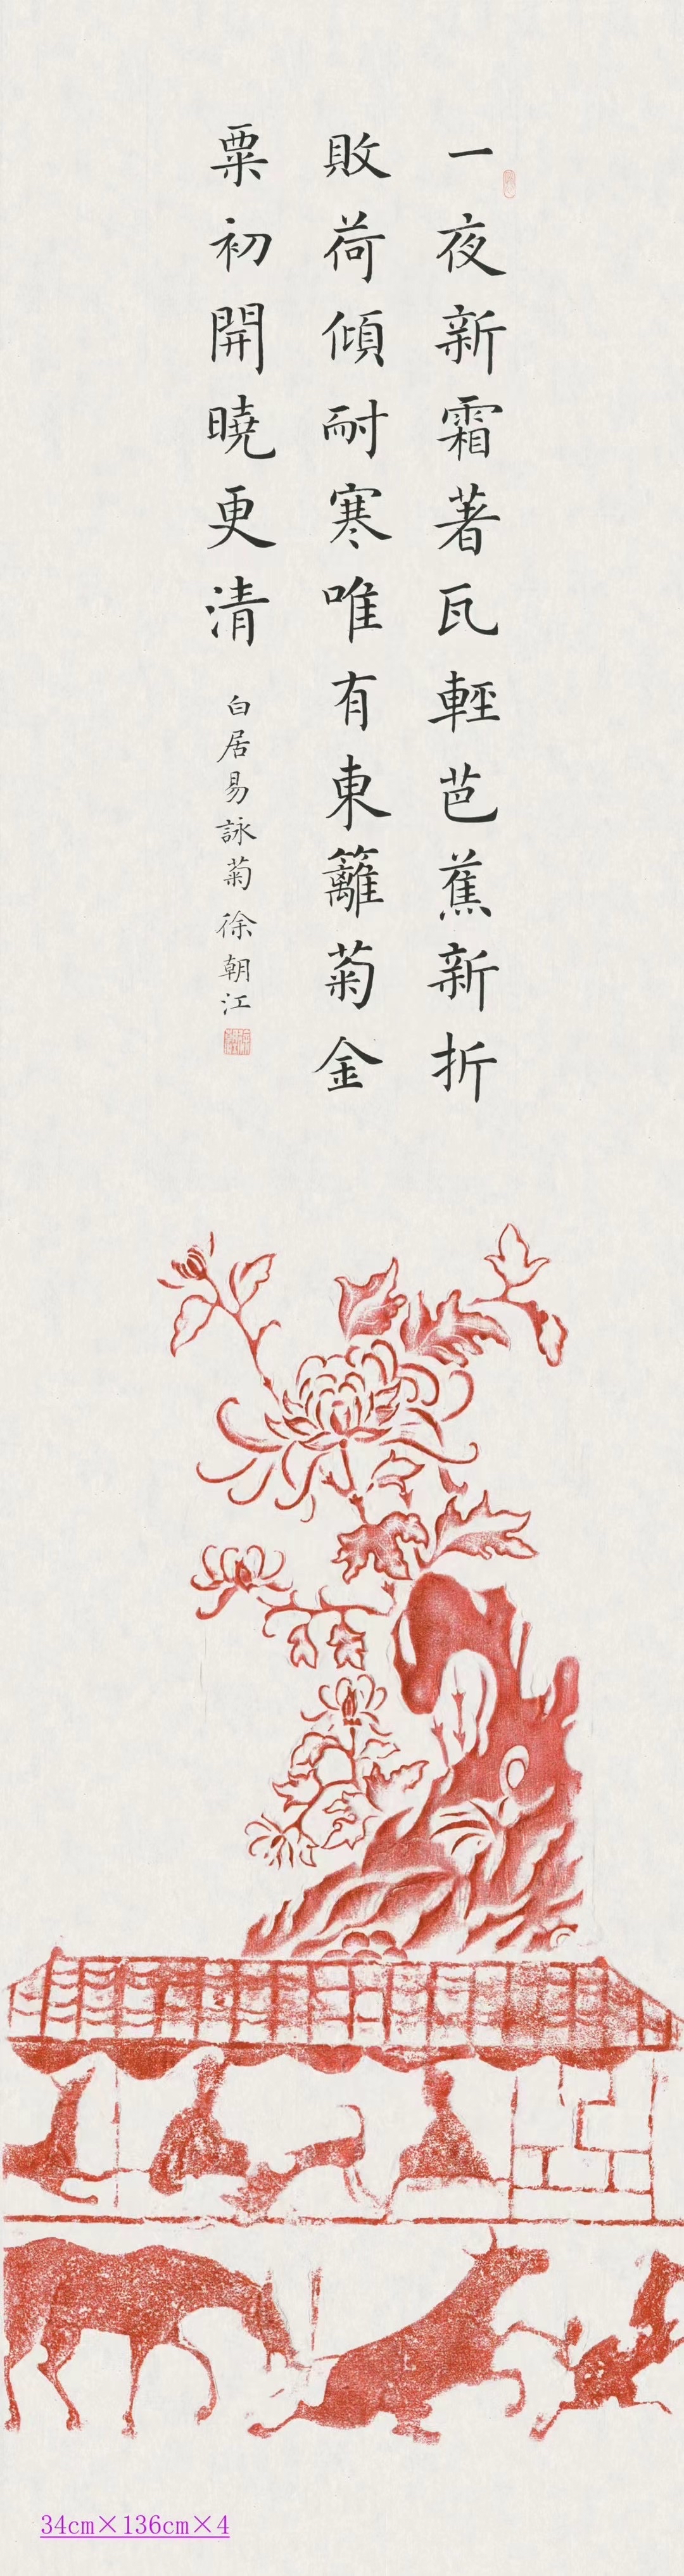 一夜新霜著瓦輕芭蕉新折
敗荷傾耐寒唯有東籬菊金
粟初開曉更清
白居易詠菊 徐朝江
34cm×136cm×4